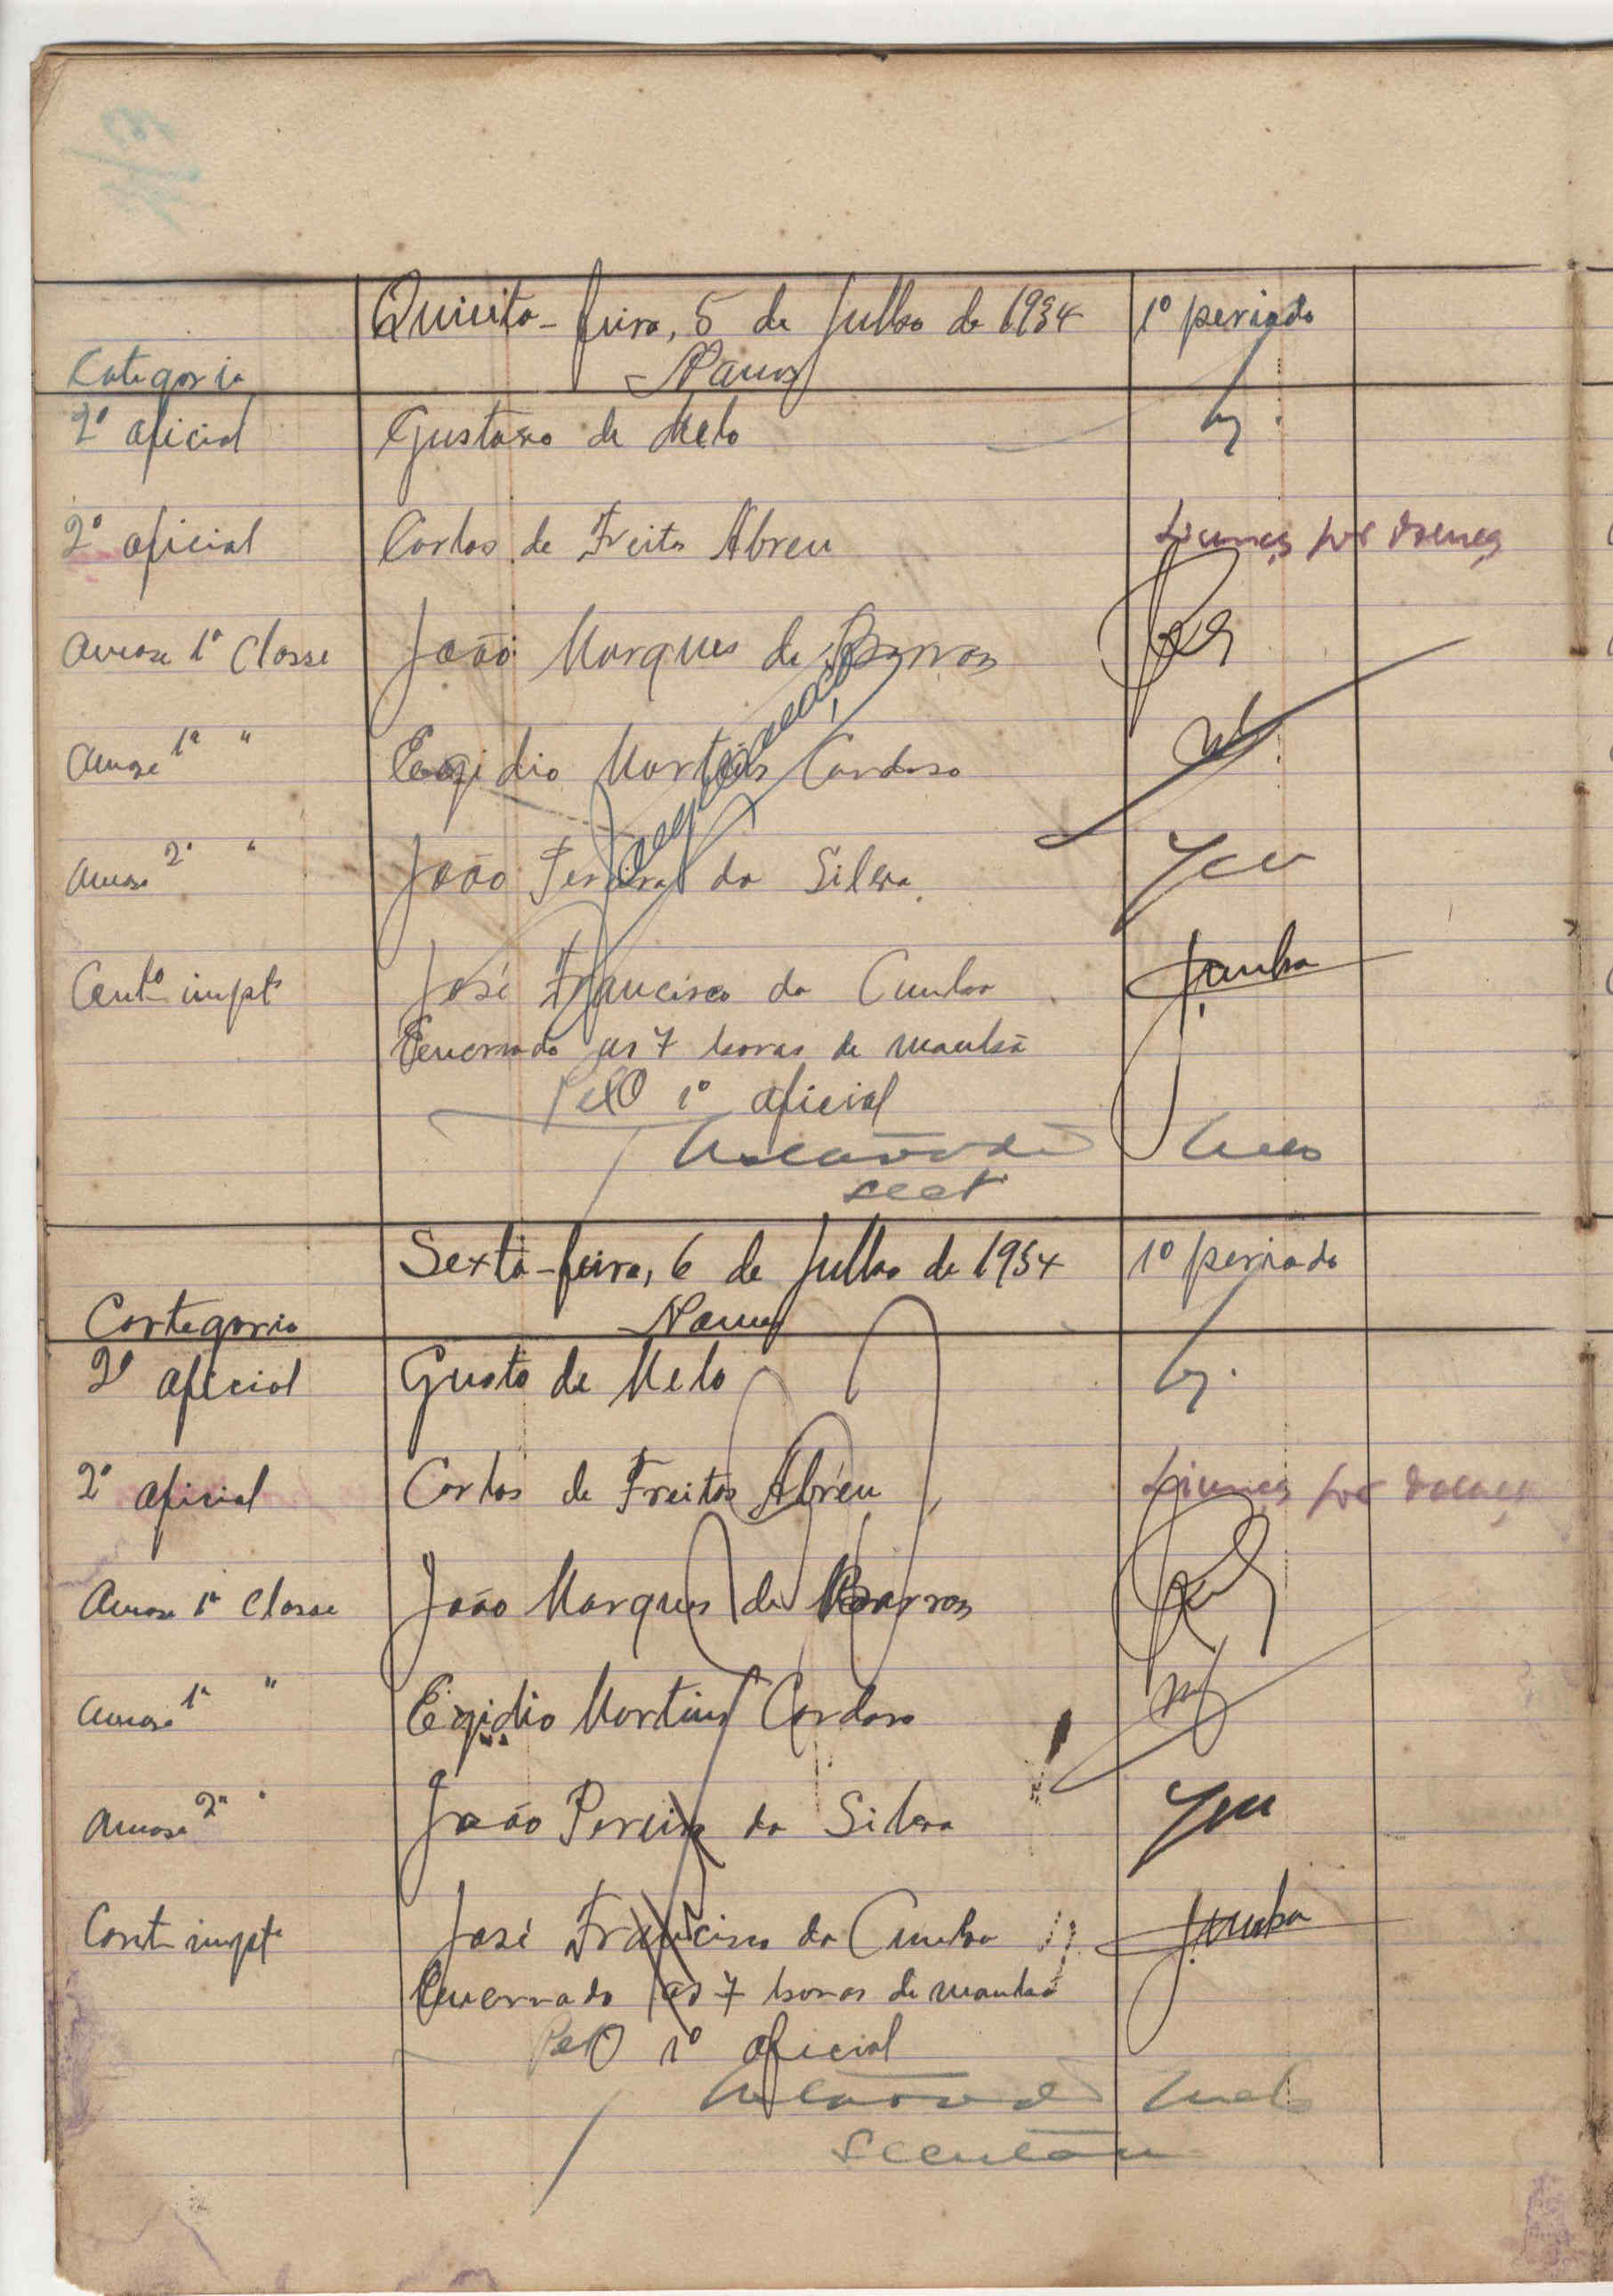 Quinta-feira, 5 de Julho de 1934 1º periodo
Categoria Nomes
2º oficial Gustavo de Melo
2º oficial Carlos de Freita Abreu Licença por doença
1ª Classe João Marques de Barros
1ª " Egidio Martins Cardoso
2ª " João Pereira da Silva
impte José Francisco da Cunha JCunha
Encerrado as 7 horas da manhã
Pelo 1º oficial
Melo
Sexta-feira, 6 de Julho de 1934 1º periodo
Cartegoria Nomes
2º oficial Gusto de Melo
2º oficial Carlos de Freitas Abreu Licença por doença
1ª Classe João Marques de Barros
1ª " Egidio Martins Cardoso
2ª " João Pereira da Silva
Cont impte José Francisco da Cunha JCunha
Encerrado as 7 horas da manhã
Pelo 1º oficial
Melo